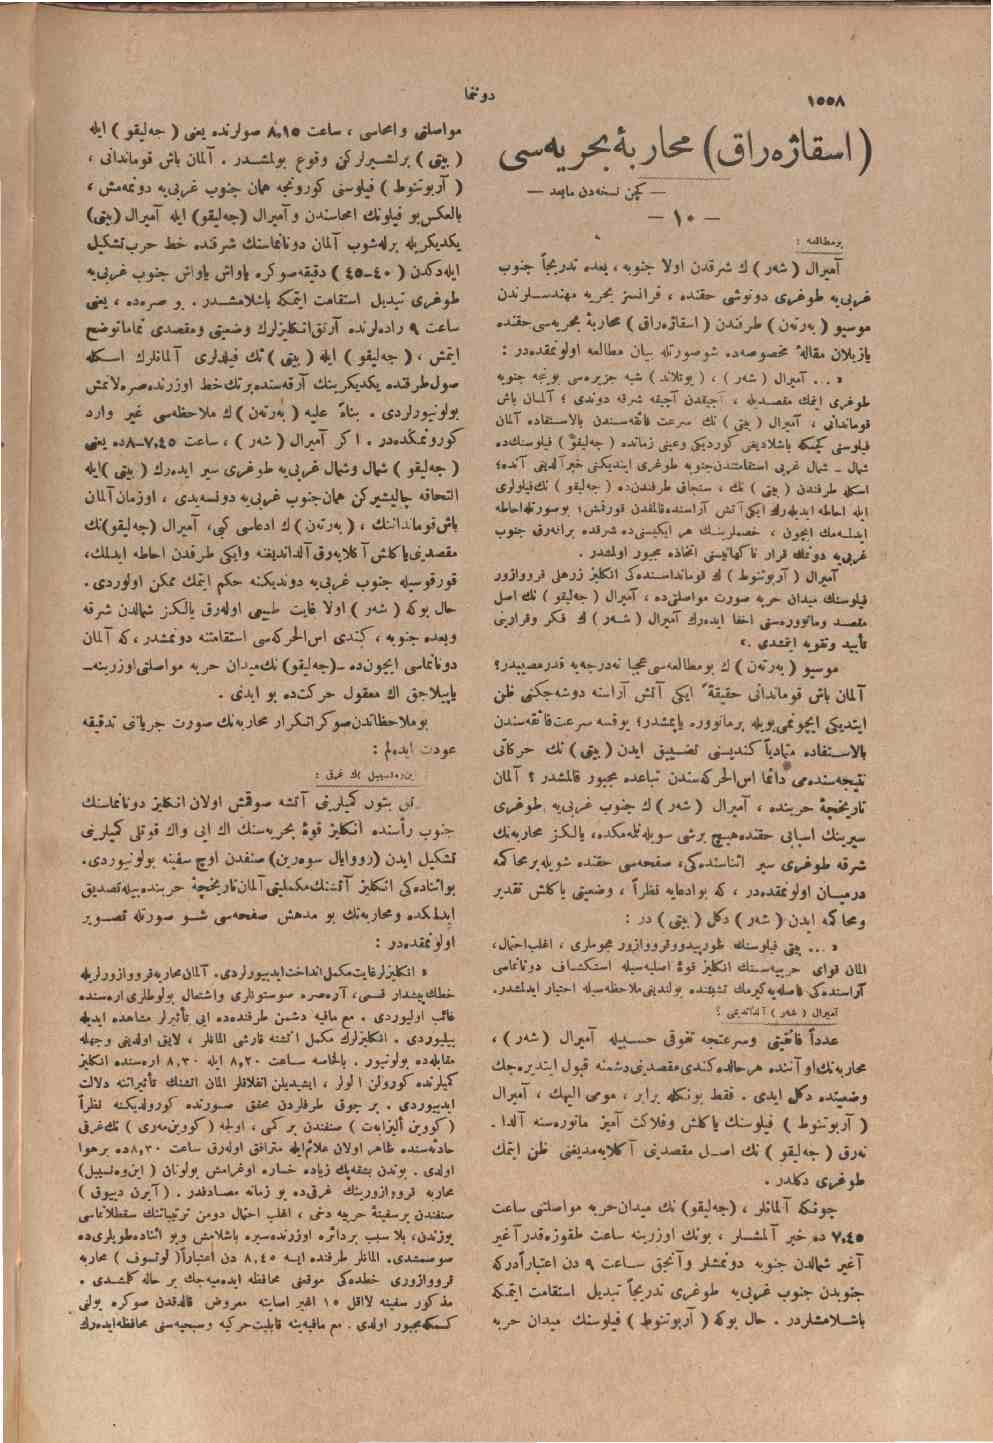 ١٥٥٨
دوننما
(اسقاژه‌راق) محاربهٔ بحریه‌سی
— كچن نسخه‌دن مابعد —
— ١٠ —
بومطالعه :
آمیرال (شه‌ر) ك شرقدن اولا جنوبه ، بعده تدریجاً جنوب
غربی‌یه طوغری دونوشی حقنده ، فرانسز بحریه مهندسلرندن
موسیو (به‌رته‌ن) طرفندن (اسقاژه‌راق) محاربهٔ بحریه‌سی حقنده
یازیلان مقاله‌ٔ مخصوصه‌ده شوصورتله بیان مطالعه اولونمقده‌در :
« ... آمیرال (شه‌ر) ، (یوتلاند) شبه جزیره‌سی بوینجه جنوبه
طوغری ایتمك مقصدیله ، آچیقدن آچیغه شرقه دوندی ؛ آلمان باش
قوماندانی ، آمیرال (بیتی) نك سرعت فائقه‌سندن بالاستفاده آلمان
فیلوسنی كچمكه باشلادیغی كوردیكی وعینی زمانده (جه‌لیقو) فیلوسنك‌ده
شمال ـ شمال غربی استقامتندن‌جنوبه طوغری ایندیكنی خبرآلدیغی آنده؛
اسكله طرفندن (بیتی) نك ، سنجاق طرفندن‌ده (جه‌لیقو) نك‌فیلولری
ایله احاطه ایدیله‌رك ایكی‌آتش آراسنده‌قالمقدن قورقمش؛ بوصورتله‌احاطه
ایدلمه‌مك ایچون ، خصملرینك هر ایكیسنی‌ده شرقده براقه‌رق جنوب
غربی‌یه دونمك قرار ناكهانیسنی اتخاذه مجبور اولمشدر .
آمیرال (آربوتنوط) ك قومانداسنده‌كی انكلیز زرهلی قرووازور
فیلوسنك میدان حربه صورت مواصلتی‌ده ، آمیرال (جه‌لیقو) نك اصل
مقصد ومانووره‌سنی اخفا ایده‌رك آمیرال (شه‌ر) ك فكر وقرارینی
تأیید وتقویه ایتمشدی .»
موسیو (به‌رته‌ن) ك بومطالعه‌سی عجبا نه‌درجه‌یه قدرمصیبدر؟
آلمان باش قوماندانی حقیقةً ایكی آتش آراسنه دوشه‌جكنی ظن
ایتدیكی ایچونمی‌بویله برمانووره یاپمشدر؛ یوقسه سرعت‌فائقه‌سندن
بالاستفاده متمادیاً كندیسنی تضییق ایدن (بیتی) نك حركاتی
نتیجه‌سنده‌می دائما اس‌الحركه‌سندن تباعده مجبور قالمشدر ؟ آلمان
تاریخچهٔ حربنده ، آمیرال (شه‌ر) ك جنوب غربی‌یه طوغری
سیرینك اسبابی حقنده‌هیچ برشی سویله‌نلمه‌مكده، یالكز محاربه‌نك
شرقه طوغری سیر اثناسنده‌كی، صفحه‌سی حقنده شویله‌برمحاكمه
درمیان اولونمقده‌در ، كه بوادعایه نظراً ، وضعیتی یاكلش تقدیر
ومحاكمه ایدن (شه‌ر) دكل (بیتی) در :
« ... بیتی فیلوسنك طورپیدوقرووازور هجوملری ، اغلب‌احتمال،
المان قوای حربیه‌سنك انكلیز قوهٔ اصلیه‌سیله استكشاف دونانماسی
آراسنده‌كی فاصله‌یه‌كیرمك تشبثنده بولندیغی‌ملاحظه‌سیله اختیار ایدلمشدر.
آمیرال (شه‌ر) آلداتدیمی ؟
عدداً فائقیتی وسرعتجه تفوقی حسبیله آمیرال (شه‌ر) ،
محاربه‌نك‌اوآننده هرحالده‌كندی‌مقصدینی‌دشمنه قبول ایتدیره‌جك
وضعیتده دكل ایدی . فقط بونكله برابر ، مومی الیهك ، آمیرال
(آربوتنوط) فیلوسنك یاكلش وفلاكت آمیز مانوره‌سنه آلدا ـ
نه‌رق (جه‌لیقو) نك اصل مقصدینی آكلایه‌مدیغنی ظن ایتمك
طوغری دكلدر .
چونكه آلمانلر ، (جه‌لیقو) نك میدان‌حربه مواصلتی ساعت
٧,٤٥ ده خبر آلمشلر ، بونك اوزرینه ساعت طقوزه‌قدر آغیر
آغیر شمالدن جنوبه دونمشلر وآنجق ساعت ٩ دن اعتباراً‌دركه
جنوبدن جنوب غربی‌یه طوغری تدریجاً تبدیل استقامت ایتمكه
باشلامشلردر . حال بوكه (آربوتنوط) فیلوسنك میدان حربه
مواصلتی وامحاسی ، ساعت ٨,١٥ صولرنده یعنی (جه‌لیقو) ایله
(بیتی) برلشیرلركن وقوع بولمشدر . آلمان باش قوماندانی ،
(آربوتنوط) فیلوسنی كورونجه همان جنوب غربی‌یه دونمه‌مش ،
بالعكس‌بو فیلونك امحاسندن وآمیرال (جه‌لیقو) ایله آمیرال (بیتی)
یكدیكریله برله‌شوب آلمان دونانماسنك شرقنده خط حرب‌تشكیل
ایله‌دكدن (٤٠–٤٥) دقیقه‌صوكره یاواش یاواش جنوب غربی‌یه
طوغری تبدیل استقامت ایتمكه باشلامشدر . بو صره‌ده ، یعنی
ساعت ٩ راده‌لرنده آرتق‌انكلیزلرك وضعیتی ومقصدی تماماتوضح
ایتمش ، (جه‌لیقو) ایله (بیتی) نك فیلولری آلمانلرك اسكله
صول‌طرفنده یكدیكرینك آرقه‌سنده‌برتك‌خط اوزرنده‌صره‌لانمش
بولونیورلردی . بناءً علیه (به‌رته‌ن) ك ملاحظه‌سی غیر وارد
كورونمكده‌در . اكر آمیرال (شه‌ر) ، ساعت ٧,٤٥–٨ده یعنی
(جه‌لیقو) شمال وشمال غربی‌یه طوغری سیر ایده‌رك (بیتی) ایله
التحاقه چالیشیركن همان‌جنوب غربی‌یه دونسه‌یدی ، اوزمان‌آلمان
باش‌قوماندانك ، (به‌رته‌ن) ك ادعاسی كبی، آمیرال (جه‌لیقو)نك
مقصدینی‌یاكلش آكلایه‌رق آلداندیغنه وایكی طرفدن احاطه ایدلمك،
قورقوسیله جنوب غربی‌یه دوندیكنه حكم ایتمك ممكن اولوردی .
حال بوكه (شه‌ر) اولا غایت طبیعی اوله‌رق یالكز شمالدن شرقه
وبعده جنوبه ، كندی اس‌الحركه‌سی استقامتنه دونمشدر، كه آلمان
دونانماسی ایچون‌ده ـ(جه‌لیقو) نك‌میدان حربه مواصلتی‌اوزرینه‌ـ
یاپیلاجق اك معقول حركت‌ده بو ایدی .
بوملاحظاتدن‌صوكراتكرار محاربه‌نك صورت جریانی تدقیقه
عودت ایده‌لم :
اینوه‌نسیبل ك غرقی :
تی بتون كمیلرینی آتشه صوقمش اولان انكلیز دونانماسنك
جنوب رأسنده انكلیز قوهٔ بحریه‌سنك اك ایی واك قوتلی كمیلرینی
تشكیل ایدن (رووایال سوه‌رین) صنفدن اوچ سفینه بولونیوردی.
بواثناده‌كی انكلیز آتشنك‌مكملیتی‌آلمان‌تاریخچهٔ حربنده‌بیله‌تصدیق
ایدلمكده ومحاربه‌نك بو مدهش صفحه‌سی شو صورتله تصویر
اولونمقده‌در :
« انكلیزلرغایت‌مكمل‌انداخت‌ایدییورلردی. آلمان‌محاربه‌قرووازورلریله
خطك‌پیشدار قسمی، آره‌صره سوستوتلری واشتعال بولوطلری‌اره‌سنده
غائب اولیوردی . مع مافیه دشمن طرفنده‌ده ایی تأثیرلر مشاهده ایدیله
بیلیوردی . انكلیزلرك مكمل آتشنه قارشی المانلر ، لایق اولدیغی وجهله
مقابله‌ده بولونیور . بالخاصه ساعت ٨,٢٠ ایله ٨,٣٠ اره‌سنده انكلیز
كمیلرنده كورولن آولر ، ایشیدیلن انفلاقلر المان اتشنك تأثیراتنه دلالت
ایدییوردی . بر چوق طرفلردن محقق صورتده كورولدیكنه نظراً
(كووین ألیزابت) صنفندن بر كمی ، اولجه (كووین‌مه‌ری) نك‌غرقی
حادثه‌سنده ظاهر اولان علائم‌ایله مترافق اوله‌رق ساعت ٨,٣٠ده برهوا
اولدی . بوندن بشقه‌پك زیاده خساره اوغرامش بولونان (این‌وه‌نسیبل)
محاربه قرووازورینك غرقی‌ده بو زمانه مصادفدر . (آیرن دیوق)
صنفندن برسفینهٔ حربیه دخی ، اغلب احتمال دومن ترتیباتنك سقطلانماسی
یوزندن، بلا سبب بردائره اوزرنده‌سیره باشلامش وبو اثناده‌طوپلری‌ده
صوصمشدی. المانلر طرفنده ایسه ٨,٤٥ دن اعتباراً( لوتسوف ) محاربه
قرووازوری خطده‌كی موقعنی محافظه ایده‌میه‌جك بر حاله كلمشدی .
مذكور سفینه لااقل ١٥ اغیر اصابته معروض قالدقدن صوكره یولنی
كسمكه‌مجبور اولدی . مع مافیه‌ینه قابلیت‌حركیه وسبحیه‌سنی محافظه‌ایده‌رك